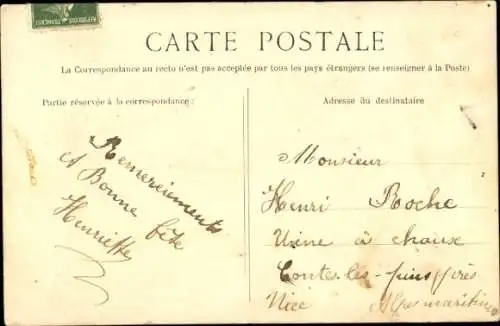 CARTE POSTALE
La Correspondance au recto n'est pas acceptée par tous les pays étrangers (se renseigner à la Poste)
Partie réservée à la correspondance:
Remerciements
et Bonne fête
Henriette
Adresse du destinataire
Monsieur
Henri Roche
Usine à chaux
Contes-les-pins près
Nice Alpes maritimes